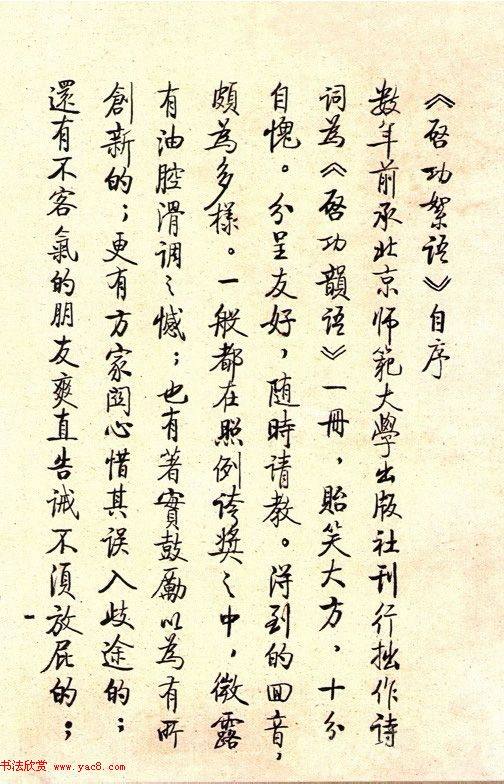 《啓功絮語》自序
数年前承北京师範大學出版社刊行拙作詩
詞为《啓功韻語》一冊，貽笑大方，十分
自愧。分呈友好，随時请教。得到的回音，
頗為多樣。一般都在照例誇奬之中，微露
有油腔滑调之憾；也有著實鼓厲以為有所
創新的；更有方家関心惜其误入歧途的；
還有不客氣的朋友爽直告诫不須放屁的；
书法欣赏 www.yac8.com